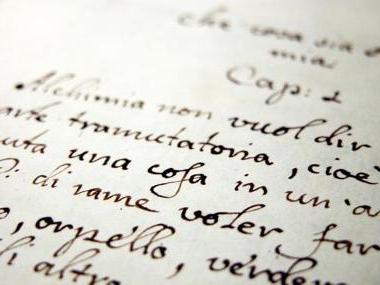 che cosa sia
mia.
Cap: 1
Alchimia non vuol dir
arte tramutatoria, cioè
uta una cosa in un'a
di rame voler far
o, orpello, verde
li altr